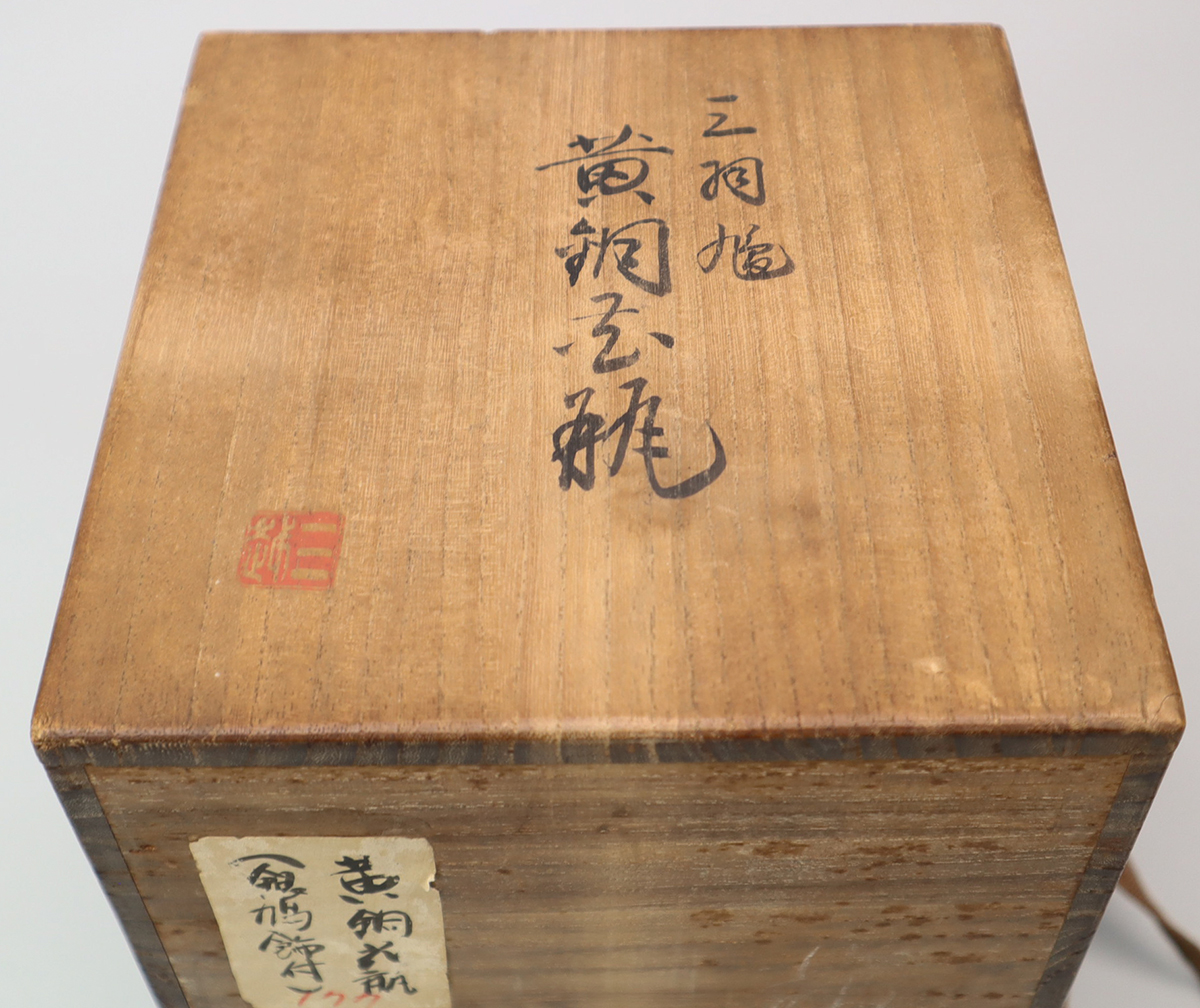 三羽鳩
黄銅花瓶
黄銅花瓶
(銀鳩飾付)